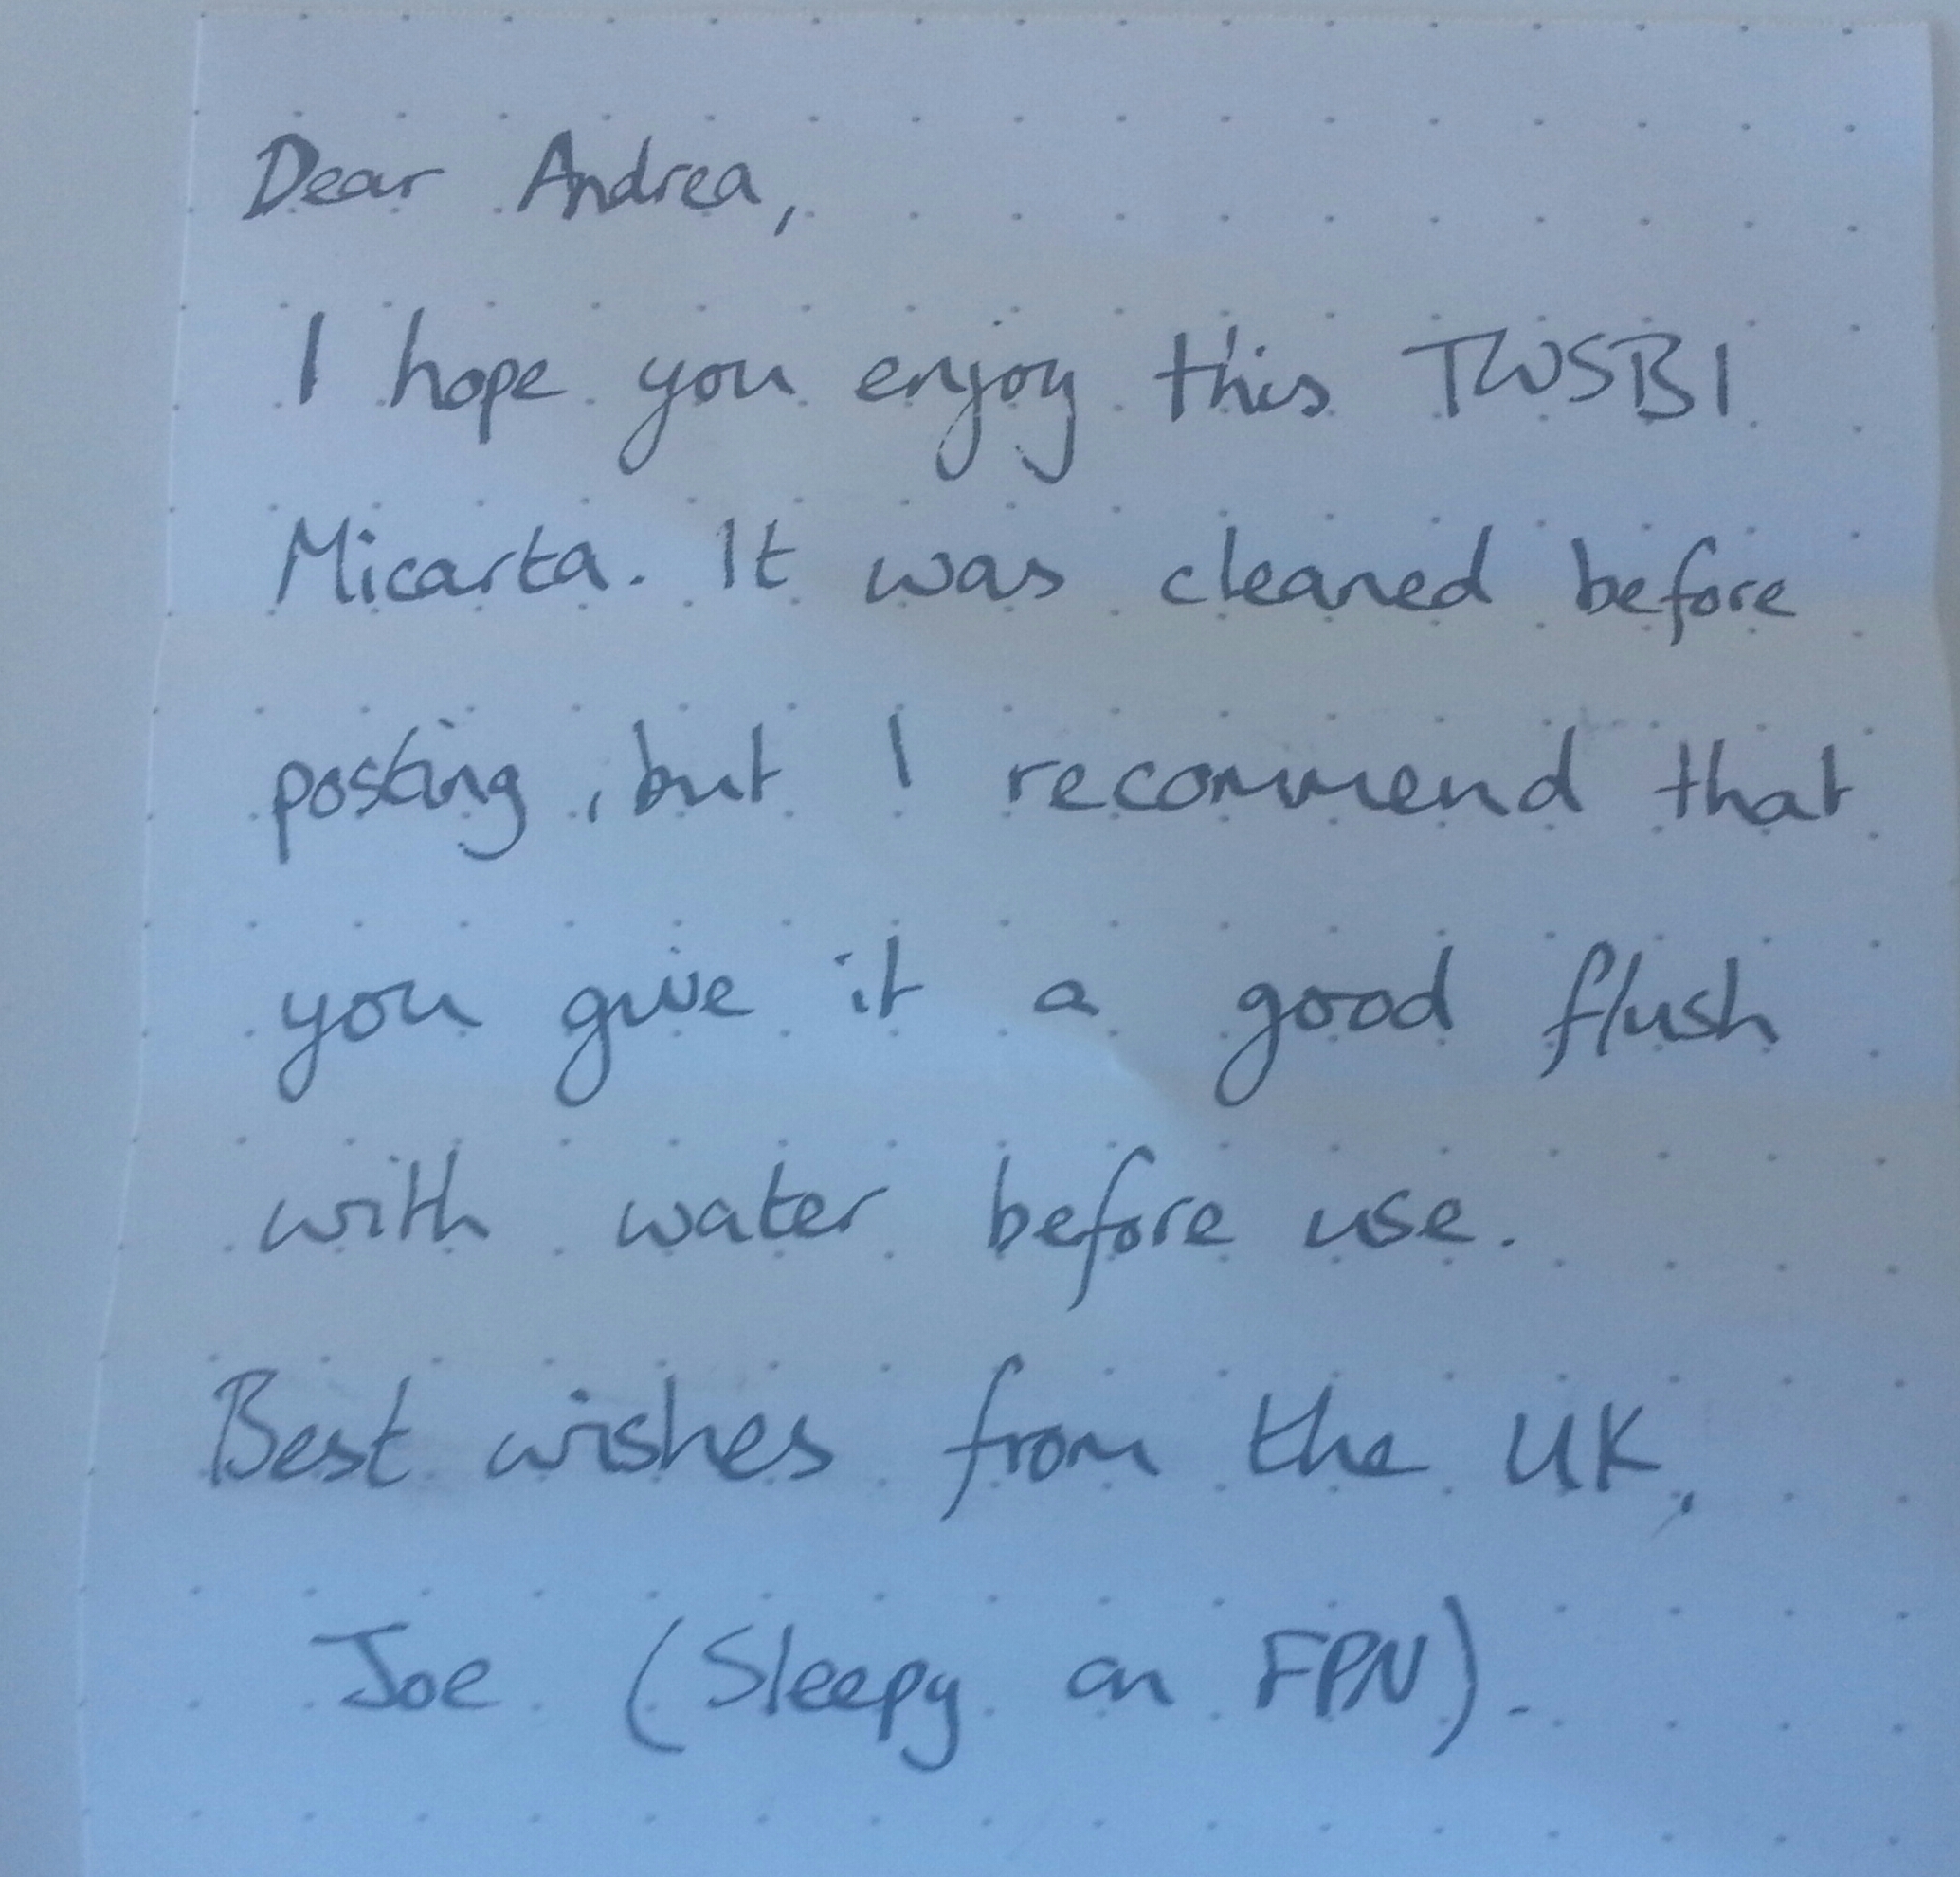 Dear Andrea,
I hope you enjoy this TWSBI
Micarta. It was cleaned before
posting, but I recommend that
you give it a good flush
with water before use.
Best wishes from the UK,
Joe (Sleepy on FPN).